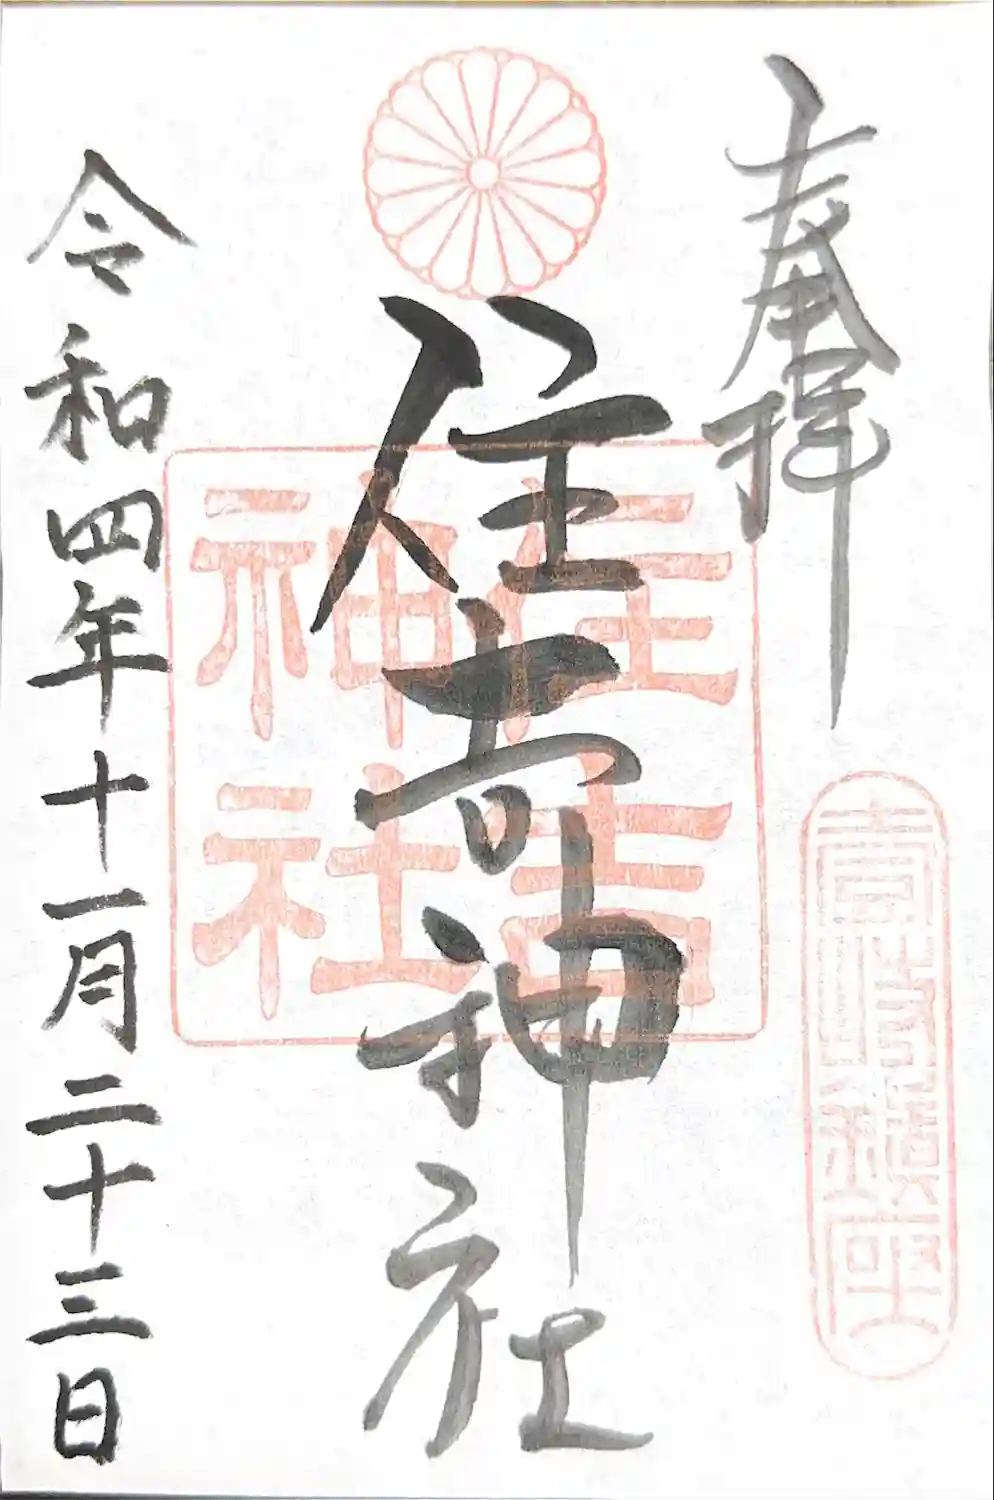 奉拝
壹岐鎮座
住吉神社
住吉
神社
令和四年十一月二十三日